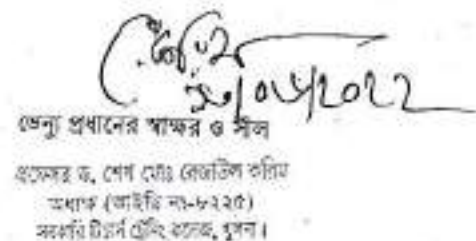 ২০২২
ভেন্যু প্রধানের স্বাক্ষর ও সীল
প্রফেসর ড. শেখ মোঃ রেজাউল করিম
অধ্যক্ষ (আইডি নং-৮২২৫)
সরকারি টিচার্স ট্রেনিং কলেজ, খুলনা।